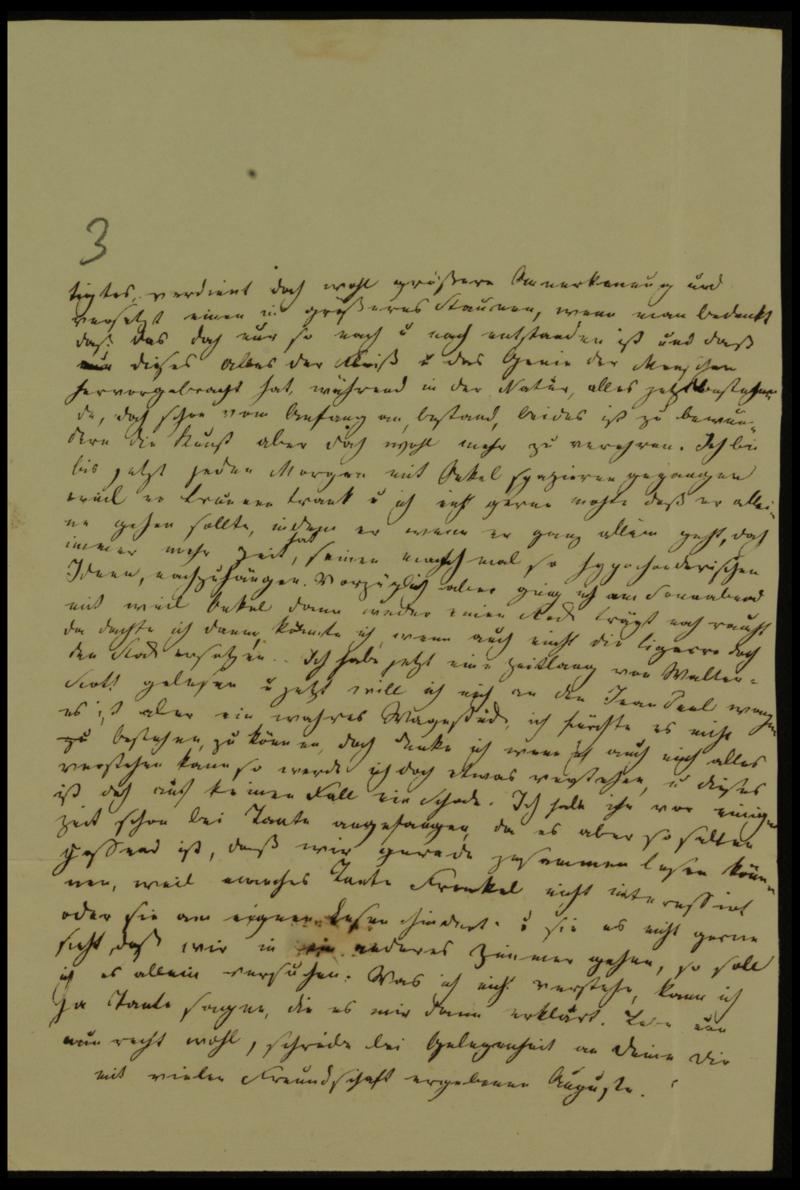 3
tigtes, verdient doch wohl größere Annerkennung und
versetzt einen in größeres Staunen, wenn man bedenkt
daß das doch nur so nach u nach entstanden ist und daß
dieses alles der Fleiß u das Genie der Menschen
hervorgebracht hat, während in der Natur, alles jetzt bestehen-
de, doch schon vom Anfang an, bestand, beides ist zu bewun-
dern die Kunst aber doch wohl mehr zu verehren. Ich bin
bis jetzt jeden Morgen mit Onkel spazieren gegangen
weil er Brunnen trank u ich nicht gerne mochte daß er allei-
ne gehen sollte, indem er wenn er ganz allein geht, doch
immer mehr Zeit hat, seinen manchmal so hypochonderischen
Ideen, nachzuhängen. Vorzüglich aber ging ich am Sonnabend
mit weil Onkel dann weder einen Stock trägt noch raucht
da dachte ich dann, könnte ich, wenn auch nicht die Cigarre doch
den Stock ersetzen. Ich habe jetzt eine Zeitlang von Walter-
Scott gelesen u jetzt will ich mich an den Jean Paul wagen
es ist aber ein wahres Wagestück, ich fürchte es nicht
zu bestehen, zu können, doch denke ich wenn ich auch nicht alles
verstehen kann so werde ich doch etwas verstehen, u dieses
ist doch auf keinen Fall ein Schade. Ich habe ihn vor einiger
Zeit schon bei Tante angefangen, da es aber so selten
passend ist, daß wir gerade zusammen lesen kön-
nen, weil manches Tante Frenkel nicht interessirt
oder sie am eignen Lesen hindert u sie es nicht gerne
sieht, daß wir in ein anderes Zimmer gehen, so soll
ich es allein versuchen. Was ich nicht verstehe, kann ich
ja Tante sagen, die es mir dann erklärt. Lebe
nun recht wohl, schreibe bei Gelegenheit an Deine Dir
mit vieler Freundschaft ergebenen Auguste.